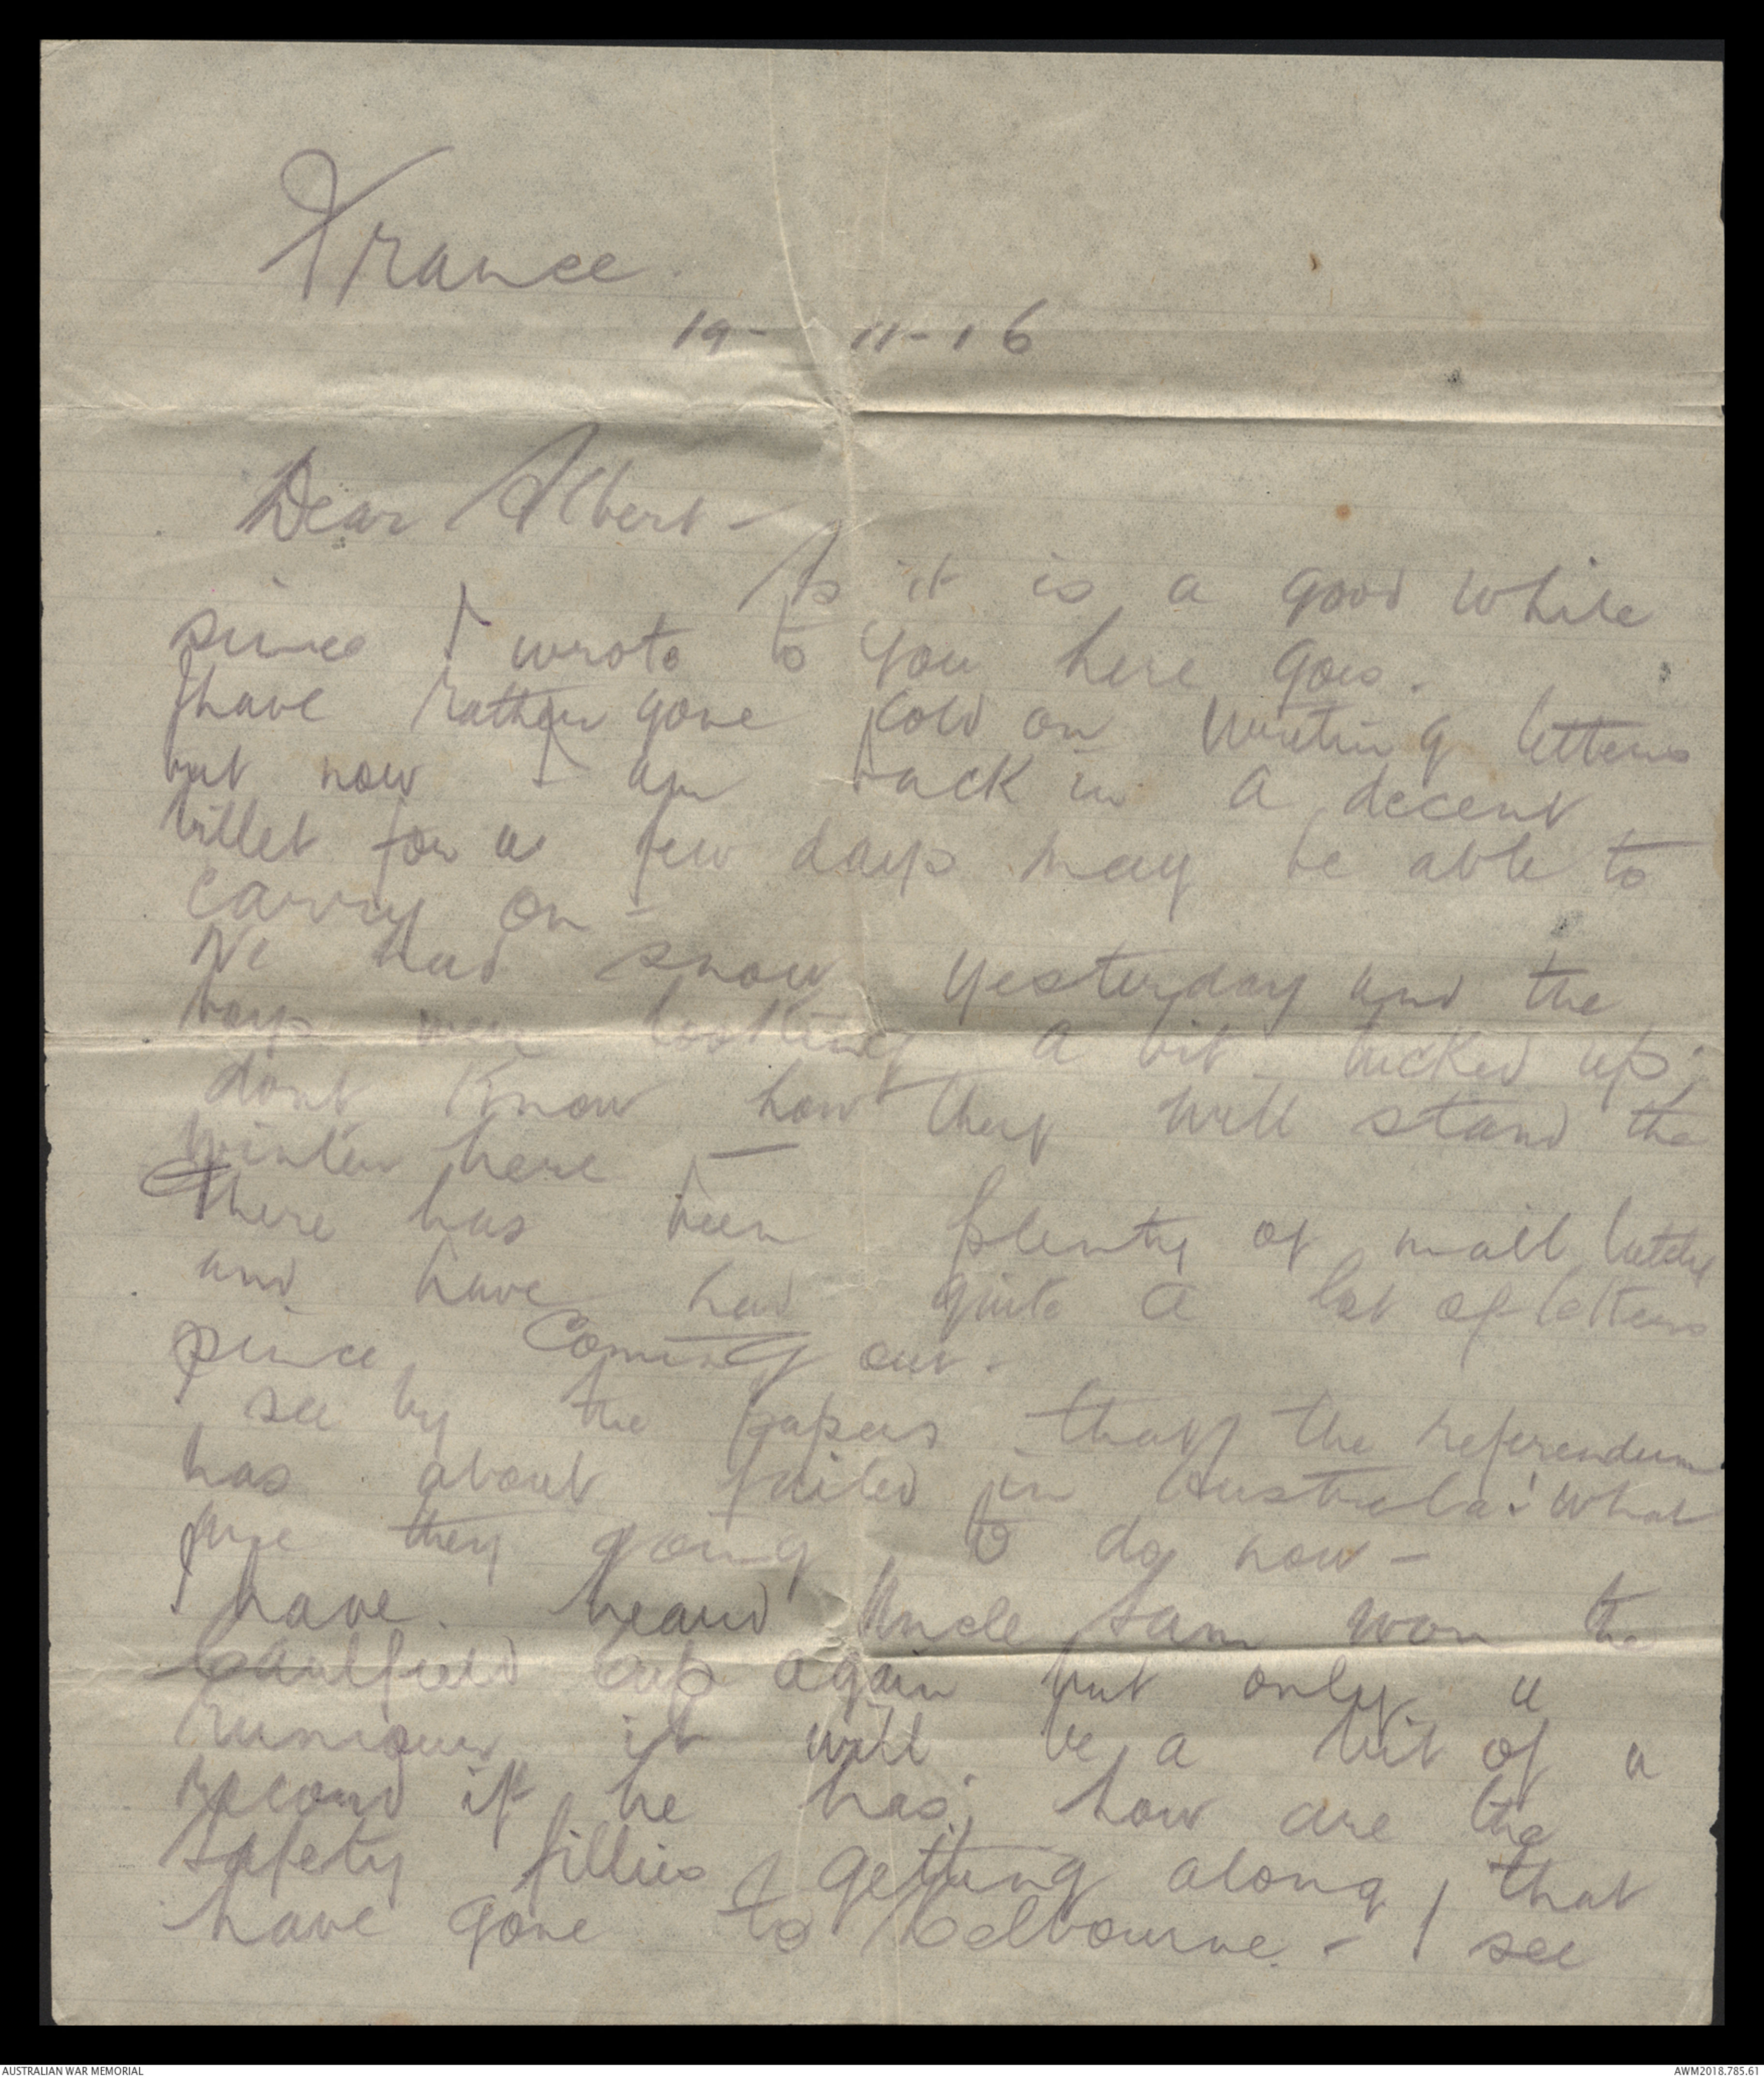 France.
19- 11-16
Dear Albert -
As it is a good while
since I wrote to you here goes.
I have rather gone cold on writing letters
but now I am back in a decent
billet for a few days may be able to
carry on -
We had snow yesterday and the
boys were looking a bit tucked up;
dont know how they will stand the
winter here -
There has been plenty of mail lately
and have had quite a lot of letters
since coming out.
I see by the papers that the referendum
has about failed in Australa! What
are they going to do now -
I have heard Uncle Sam won the
Caulfield Cup again but only a
rumour it will be a bit of a
record if he has; how are the
Safety fillies getting along, that
have gone to Melbourne. - I see
AUSTRALIAN WAR MEMORIAL
AWM2018.785.61